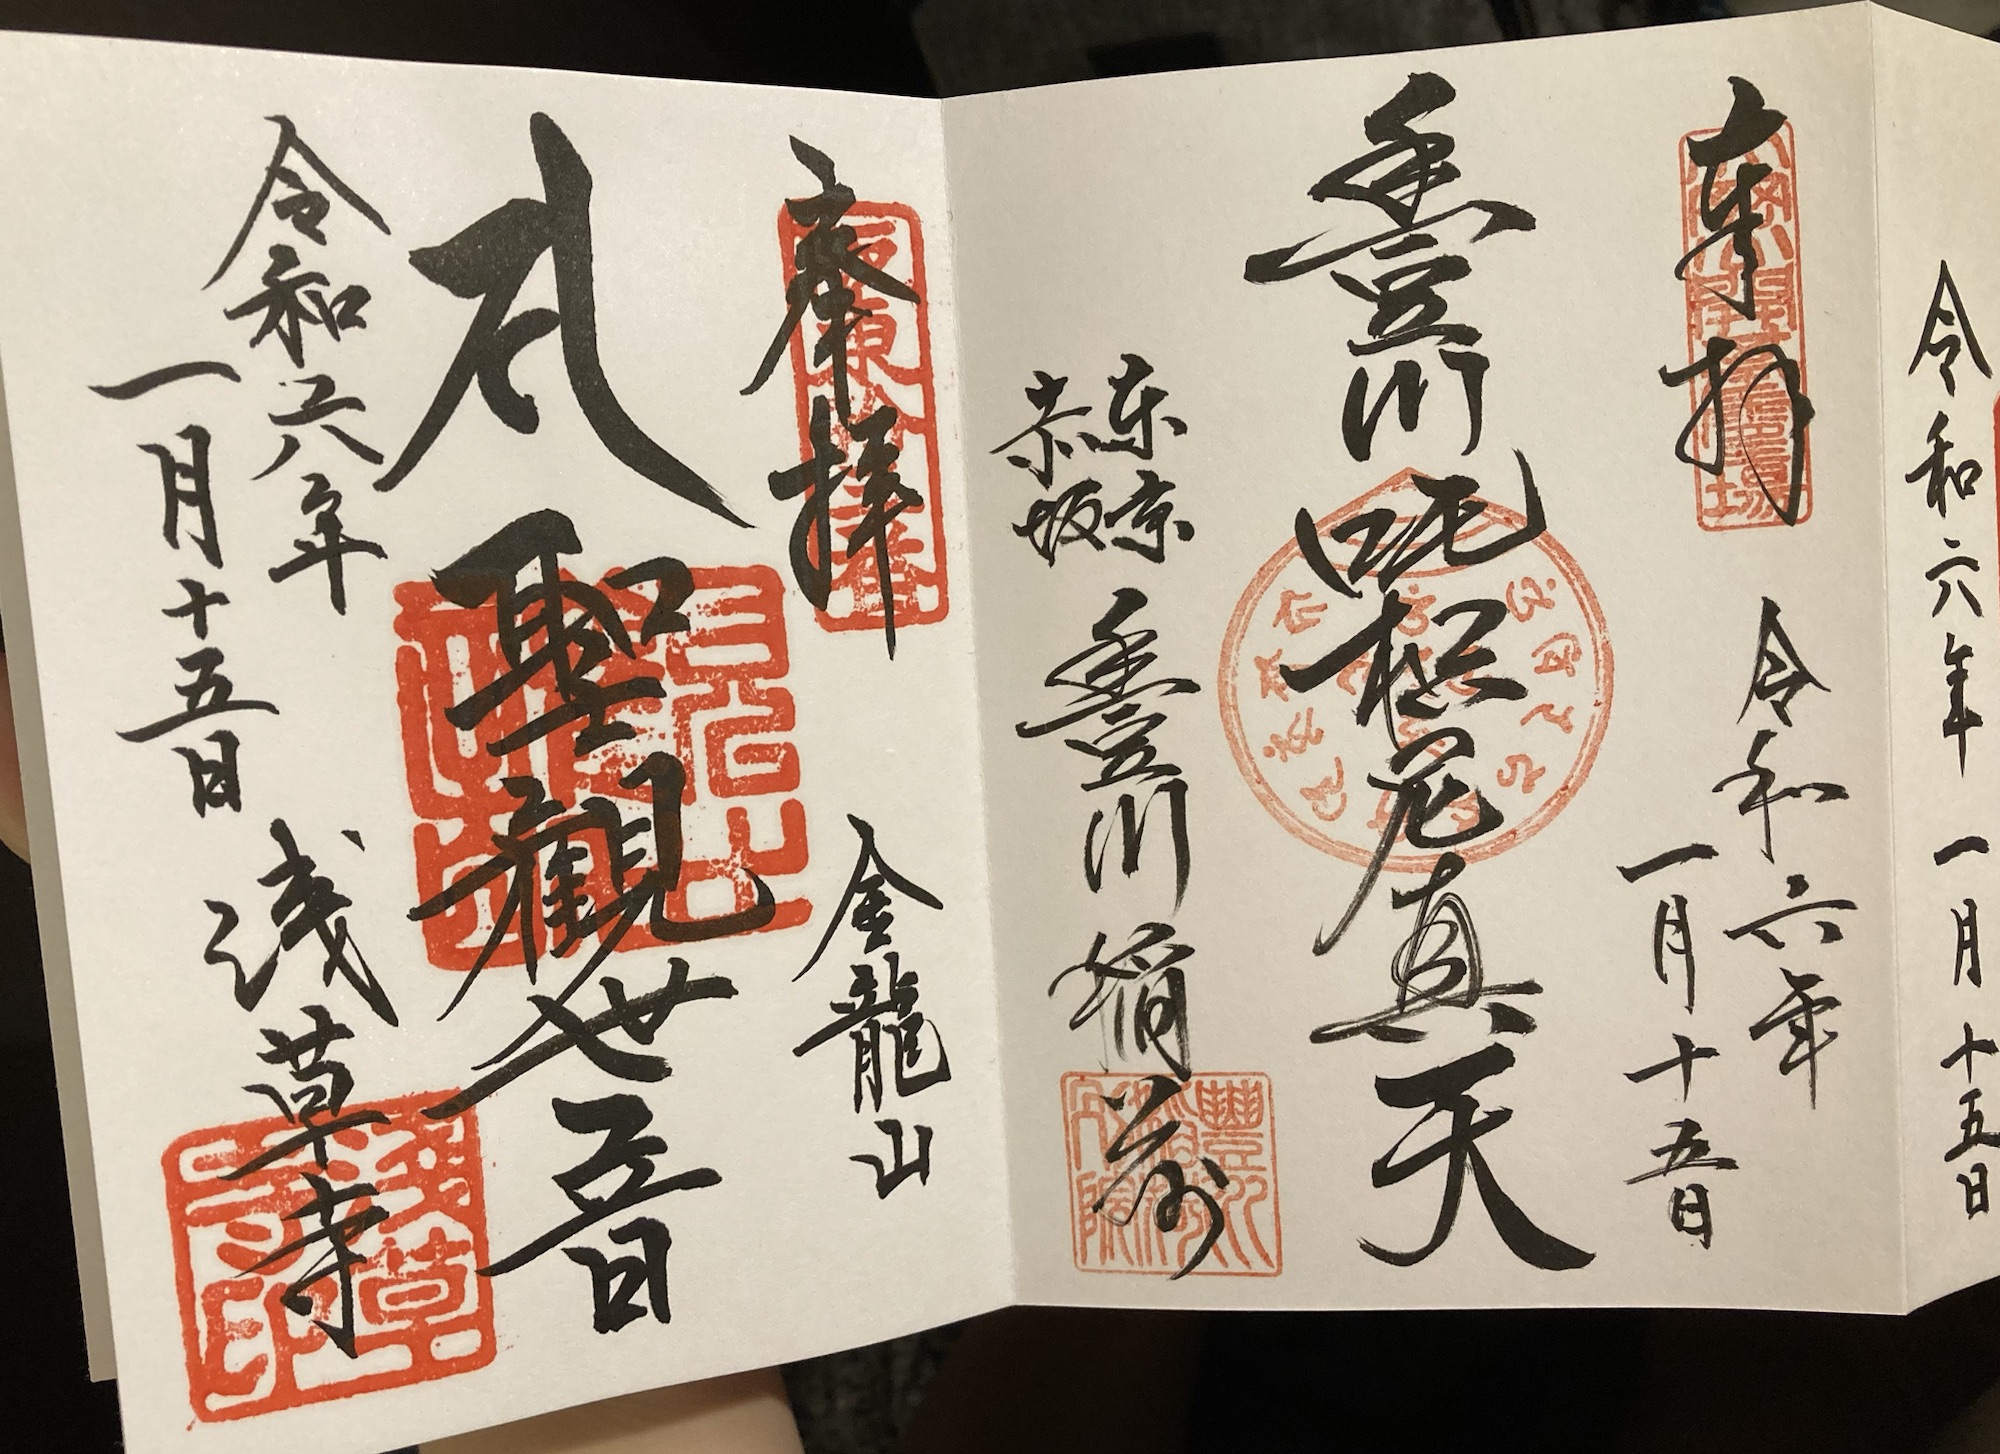 令和六年 一月十五日
奉拝
令和六年
一月十五日
豊川吒枳尼真天
東京
赤坂
豊川稲荷
奉拝
金龍山
聖観世音
令和六年
一月十五日
浅草寺